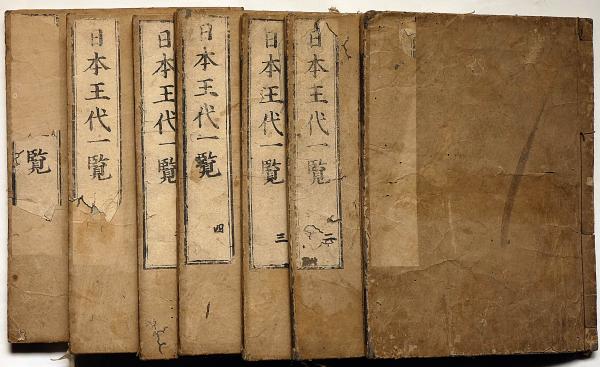 日本王代一覧 二
日本王代一覧 三
日本王代一覧 四
日本王代一覧
日本王代一覧
一覧